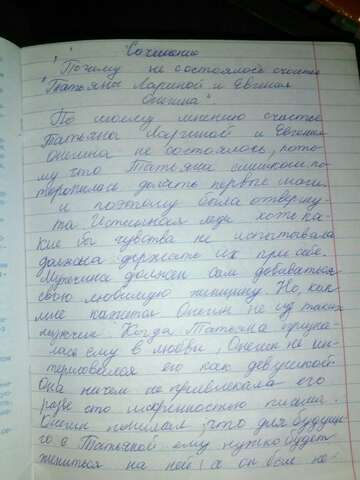 Сочинение
"Почему не состоялось счастье
Татьяны Лариной и Евгения
Онегина".
По моему мнению счастье
Татьяны Лариной и Евгения
Онегина не состоялось, пото-
му что Татьяна слишком по-
торопилась делать первые шаги
и поэтому была отвергну-
та. Истинная леди хоть ка-
кие бы чувства не испытывала
должна держать их при себе.
Мужчина должен сам добиваться
свою любимую женщину. Но, как
мне кажется Онегин не из таких
мужчин. Когда Татьяна призна-
лась ему в любви, Онегин не ин-
тересовался ею как девушкой.
Она ничем не привлекала его
разве что искренностью письма.
Онегин понимал, что для будуще-
го с Татьяной ему нужно будет
жениться на ней, а он был не-